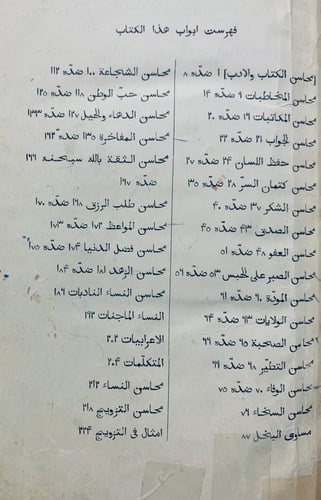 فهرست ابواب هذا الكتاب
[محاسن الكتاب والادب] ١ ضدّه ٨
محاسن المخاطبات ٩ ضدّه ١٤
محاسن المكاتبات ١٦ ضدّه ٢٠
محاسن الجواب ٢١ ضدّه ٢٢
محاسن حفظ اللسان ٢٤ ضدّه ٢٧
محاسن كتمان السرّ ٢٨ ضدّه ٣٥
محاسن الشكر ٣٧ ضدّه ٤٠
محاسن الصدق ٤٣ ضدّه ٤٥
محاسن العفو ٤٨ ضدّه ٥١
محاسن الصبر على الحبس ٥٣ ضدّه ٥٦
محاسن المودّة ٦٠ ضدّه ٦١
محاسن الولايات ٦٣ ضدّه ٦٤
محاسن الصحبة ٦٥ ضدّه ٦٦
محاسن التطيّر ٦٨ ضدّه ٦٩
محاسن الوفاء ٧٠ ضدّه ٧٥
محاسن السخاء ٧٦
مساوى البخل ٨٧
محاسن الشجاعة ١٠٠ ضدّه ١١٢
محاسن حبّ الوطن ١١٨ ضدّه ١٢٥
محاسن الدهاء والحيل ١٢٧ ضدّه ١٣٣
محاسن المفاخرة ١٣٥ ضدّه
محاسن الثقة بالله سبحنه ١٦٦
ضدّه ١٦٧
محاسن طلب الرزق ١٦٨ ضدّه ١٧٠
محاسن المواعظ ١٧٢ ضدّه ١٧٣
محاسن فضل الدنيا ١٧٤ ضدّه ١٧٥
محاسن الزهد ١٨١ ضدّه ١٨٤
محاسن النساء النادبات ١٨٦
النساء الماجنات ١٩٢
الاعرابيات ٢٠٢
المتكلّمات ٢٠٤
محاسن النساء ٢١٢
محاسن التزويج ٢١٨
امثال فى التزويج ٢٢٤